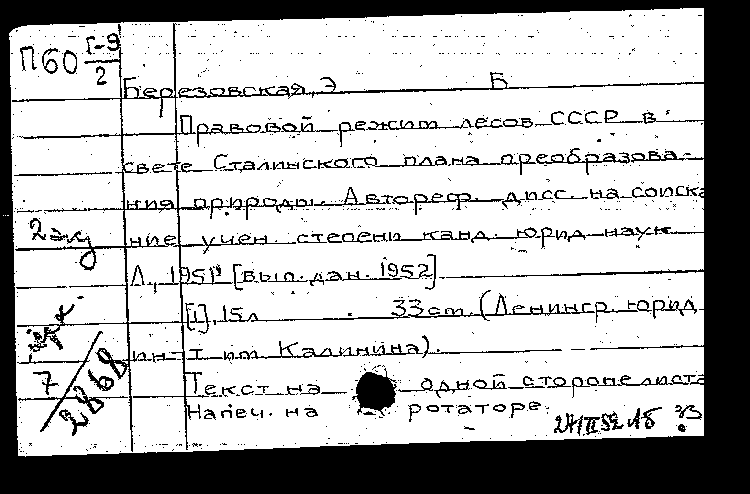 П60 Г-9/2
Березовская, Э Б
Правовой режим лесов СССР в
свете Сталинского плана преобразова-
ния природы. Автореф. дисс. на соиска
2 экз
ние учен. степени канд. юрид наук
Л., 1951 [вып. дан. 1952]
[1], 15л 33 cm. (Ленингр. юрид
ин-т им Калинина).
7/2868
Текст на одной стороне листа
Напеч. на ротаторе.